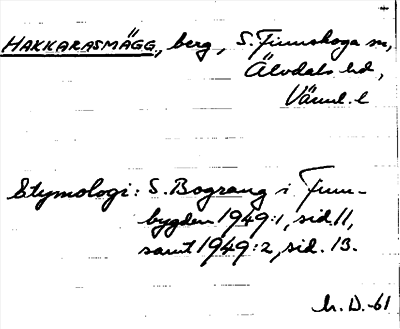 HAKKARASMÄGG, berg, S. Finnskoga sn,
Älvdals hd,
Värml. l
Etymologi: S. Bograng i Finn-
bygden 1949:1, sid. 11,
samt 1949:2, sid. 13.
M. D. -61